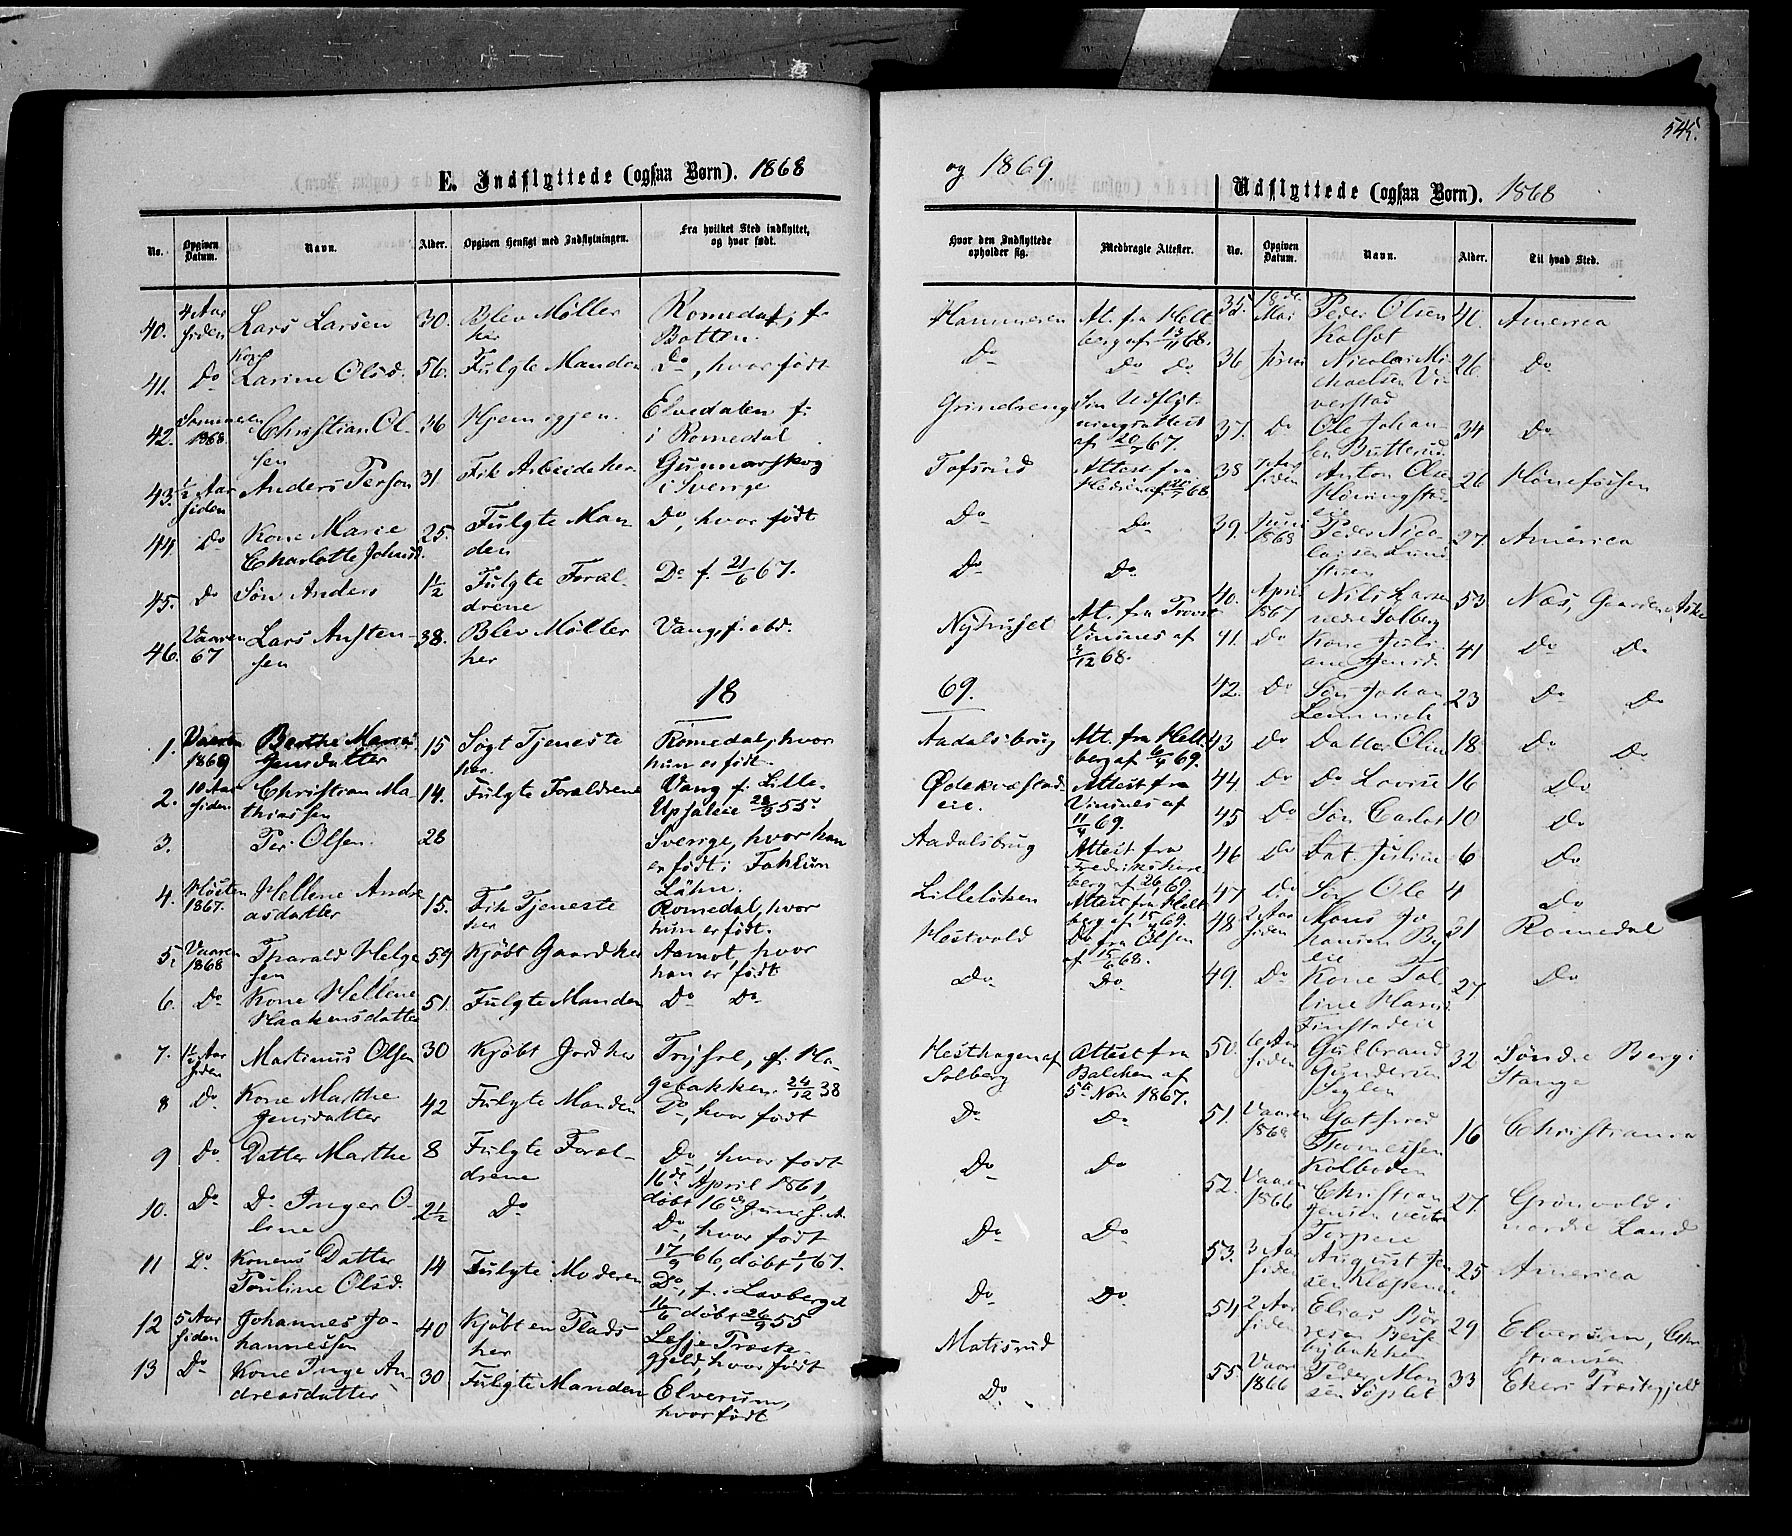 545.
E. Indflyttede (ogsaa Børn). 1868
No. | Opgiven Datum. | Navn. | Alder. | Opgiven Hensigt med Indflytningen. | Fra hvilket Sted indflyttet, og hvor født.
40. | 4 Aar siden | Lars Larsen | 30. | Blev Møller her | Romedal; f. Botten.
41. | Do | Kone Larine Olsd. | 56. | Fulgte Manden | Do, hvor født
42. | Sommeren 1868 | Christian Olsen | 36 | Hjem igjen. | Elvedalen f. i Romedal
43. | ½ Aar siden | Anders Person | 31 | Fik Arbeide her | Gunnarskog i Sverige
44. | Do | Kone Marie Charlotte Johnsd. | 25. | Fulgte Manden | Do, hvor født
45. | Do | Søn Anders | 1½ | Fulgte Forældrene | Do f. 21/6 67.
46. | Vaaren 67 | Lars Austensen | 38. | Blev Møller her | Vang, f. ebd.
18
1. | Vaaren 1869 | Berthe Marie Jensdatter | 15 | Søgt Tjeneste her. | Romedal, hvor hun er født.
2. | 10 Aar siden. | Christian Mathiassen | 14. | Fulgte Forældrene | Vang f. Lille-Upsaleie 28/3 55
3. | Per Olsen. | 28 | Sverige, hvor han er født i Lähn.
4. | Høsten 1867. | Hellene Andreasdatter | 15. | Fik Tjeneste her | Romedal, hvor hun er født.
5. | Vaaren 1868 | Tharald Helgesen | 59 | Kjøbt Gaard her | Aamot, hvor han er født
6. | Do | Kone Hellene Haakensdatter | 51. | Fulgte Manden | Do Do
7. | 1½ Aar siden | Martinus Olsen | 30 | Kjøbt Jord her | Trysil, f. Hagebakken. 24/12 38
8 | Do | Kone Marthe Jensdatter | 42 | Fulgte Manden | Do, hvor født
9 | Do | Datter Marthe | 8 | Fulgte Forældrene | Do, hvor født 16de April 1861, døbt 16de Juni s. A.
10. | Do | Do Inger Oline | 2½ | Do | Do, hvor født 17/9 66, døbt 1/1 67.
11 | Do | Konens Datter Pauline Olsd. | 14 | Fulgte Moderen | Do, f. i Lavberget 16/6 døbt 26/9 55
12 | 5 Aar siden | Johannes Johannessen | 40 | Kjøbt en Plads her | Lesje Præstegjeld, hvor født
13 | Do | Kone Inge Andreasdatter | 30 | Fulgte Manden | Elverum, hvor født
og 1869.
Hvor den Indflyttede opholder sig. | Medbragte Attester.
Hammeren | At. fra Heltberg af 13/11 68.
Do | Do Do
Grindreng | Sin Udflytningsattest af 20/7 67.
Tofsrud | Attest fra
Do | Do
Do | Do
Nyhuset | At. fra Provst Vinsnes af 3/12 68.
69.
Aadalsbrug | Att. fra Heltberg af 6/4 69.
Ødekvæstad-eie. | Attest fra Vinsnes af 11/4 69.
Aadalsbrug | Attest fra af 26/ 69
Lillelöken | Attest fra Heltberg af 15/ 69.
Hestvold | Do fra Olsen af 15/6 68.
Do | Do
Hesthagen af Solberg | Attest fra Balchen af 5te Nov. 1867.
Do | Do
Do | Do
Do | Do
Do | Do
Matisrud
Do
Udflyttede (ogsaa Børn). 1868
No. | Opgiven Datum. | Navn. | Alder. | Til hvad Sted.
35. | 18de Mai | Peder Olsen Kolset | 41. | America
36 | | Nicolai Michaelsen Viverstad | 26 | Do
37. | Do | Ole Johansen Butterud | 34 | Do
38 | siden | Anton Olsen Hörningstadeie | 26 | Hönefossen
39. | Juni 1868 | Peder Nicolaisen Lundstuen | 27. | America
40. | April 1867 | Nils Larsen nedre Solberg | 53. | Næs, Gaarden Aske
41. | Do | Kone Juliane Jensd. | 41 | Do Do
42. | Do | Søn Johan | 23 | Do Do
43 | Do | Datter Oline | 18 | Do Do
44 | Do | Do Lovise | 16 | Do
45 | Do | Søn Carl | 10 | Do
46 | Do | Dat. Juline | 6 | Do
47 | Do | Søn Ole | 4 | Do
48 | 2 Aar siden | Hans Johansen Byeie | 31 | Romedal
49. | Do | Kone Finstadeie | 27 | Do
50. | 6 Aar siden | Gulbrand Gundersen | 32 | Søndre Berg i Stange
51. | Vaaren 1868 | Kolbeden | 16 | Christiania
52. | Vaaren 1866 | Christian Jensen Torpeie | 27. | Grönvold i nordre Land
53. | 3 Aar siden | August Jensen | 25 | America
54 | 2 Aar siden | Elias | 29 | Elverum,
55 | Vaaren 1866 | Peder | 33 | Ekers Præstegjeld